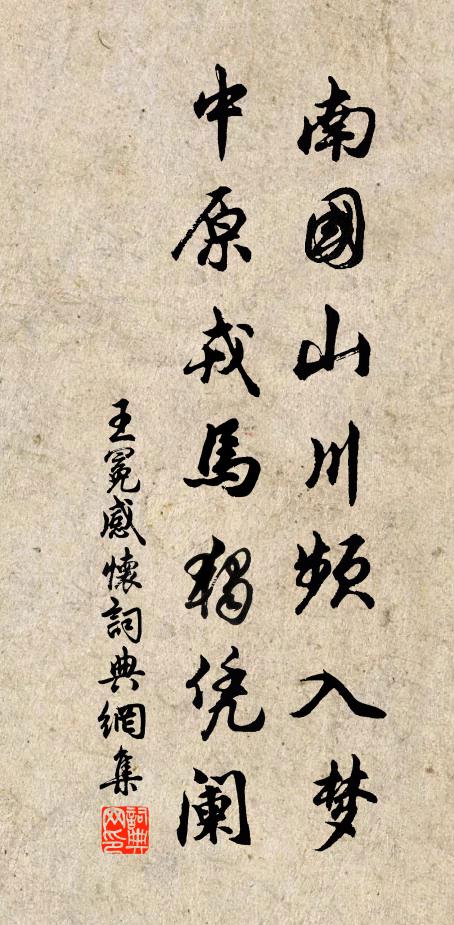 南國山川頻入梦
中原戎馬獨凭阑
王冕感懷詞典網集
詞典网印